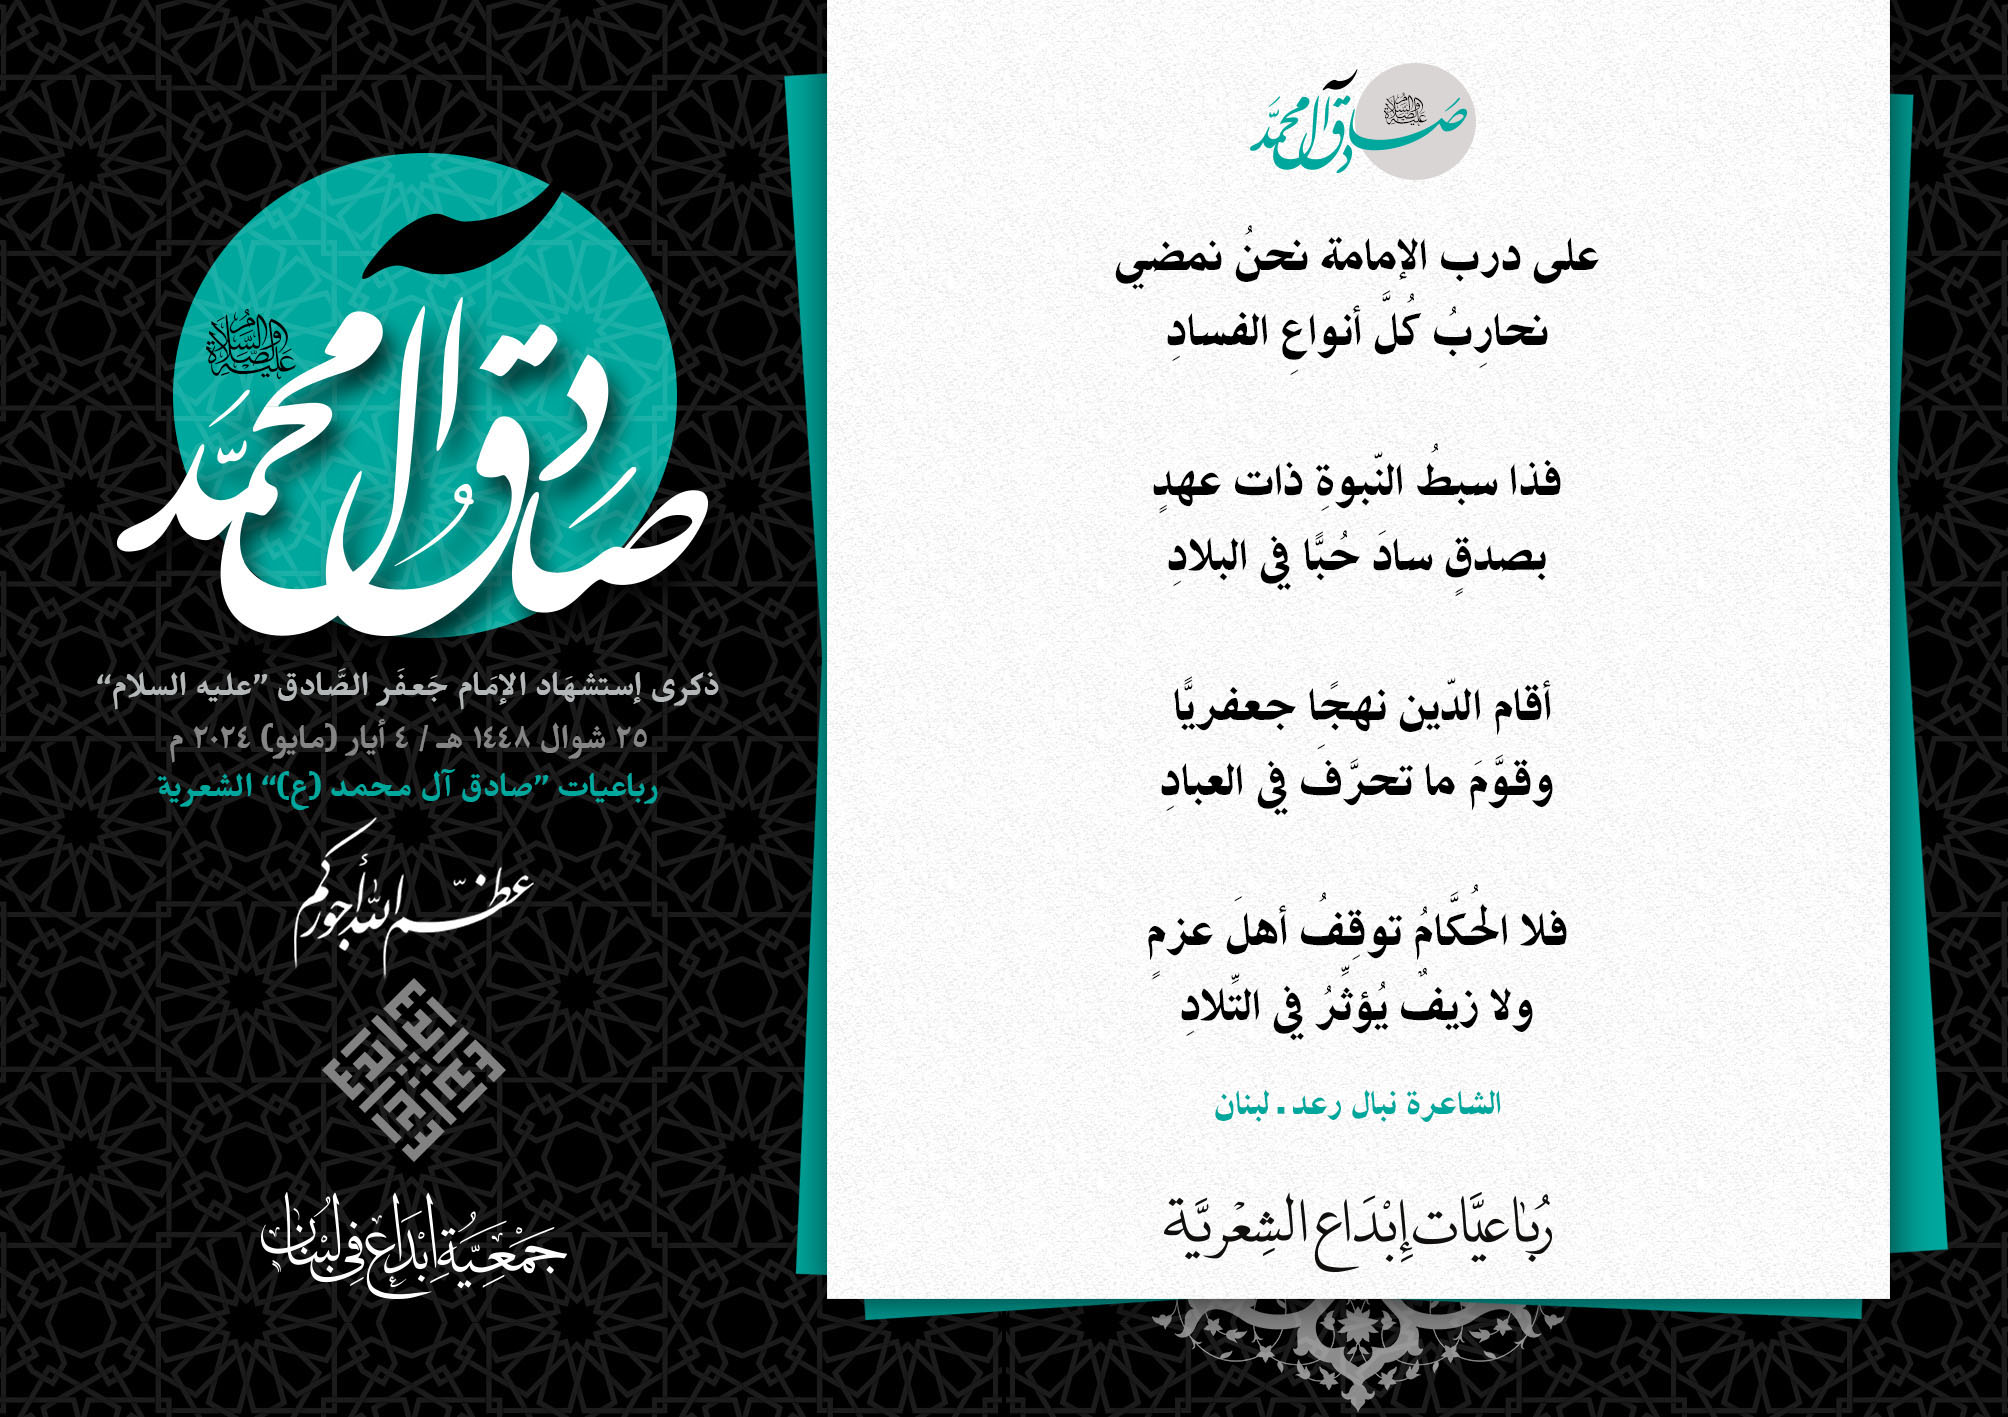 صادق آل محمد
عليه الصلاة والسلام
على درب الإمامة نحنُ نمضي
نحارِبُ كُلَّ أنواعِ الفسادِ
فذا سبطُ النّبوةِ ذات عهدٍ
بصدقٍ سادَ حُبًّا في البلادِ
أقام الدّين نهجًا جعفريًّا
وقوَّمَ ما تحرَّفَ في العبادِ
فلا الحُكَّامُ توقِفُ أهلَ عزمٍ
ولا زيفٌ يُؤثِّرُ في التِّلادِ
الشاعرة نبال رعد ـ لبنان
رُبَاعيَّات إِبْدَاع الشِعْريَّة
صَادِقُ آل محمَّد
عليه الصلاة والسلام
ذكرى إستشهَاد الإمَام جَعفَر الصَّادق ”عليه السلام“
٢٥ شوال ١٤٤٨ هـ / ٤ أيار (مايو) ٢٠٢٤ م
رباعيات ”صادق آل محمد (ع)“ الشعرية
عظّم الله أجوركم
جَمْعِيَّةُ إِبْدَاع فِي لُبْنَان